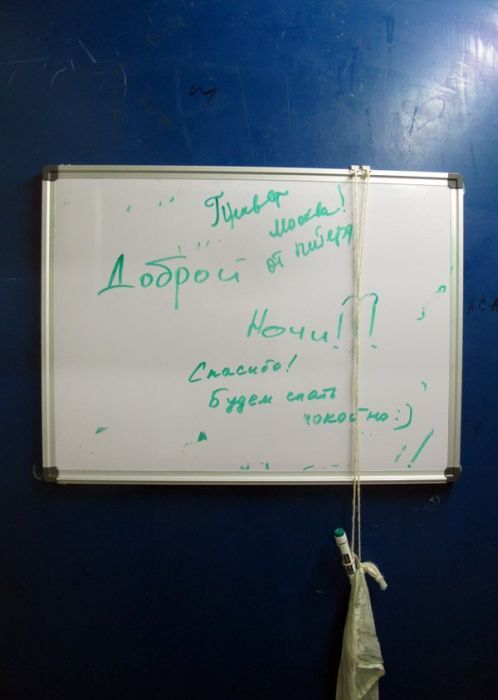 Привет
Москва!
от питера
Доброй
Ночи!!!
Спасибо!
Будем спать
покойно:)